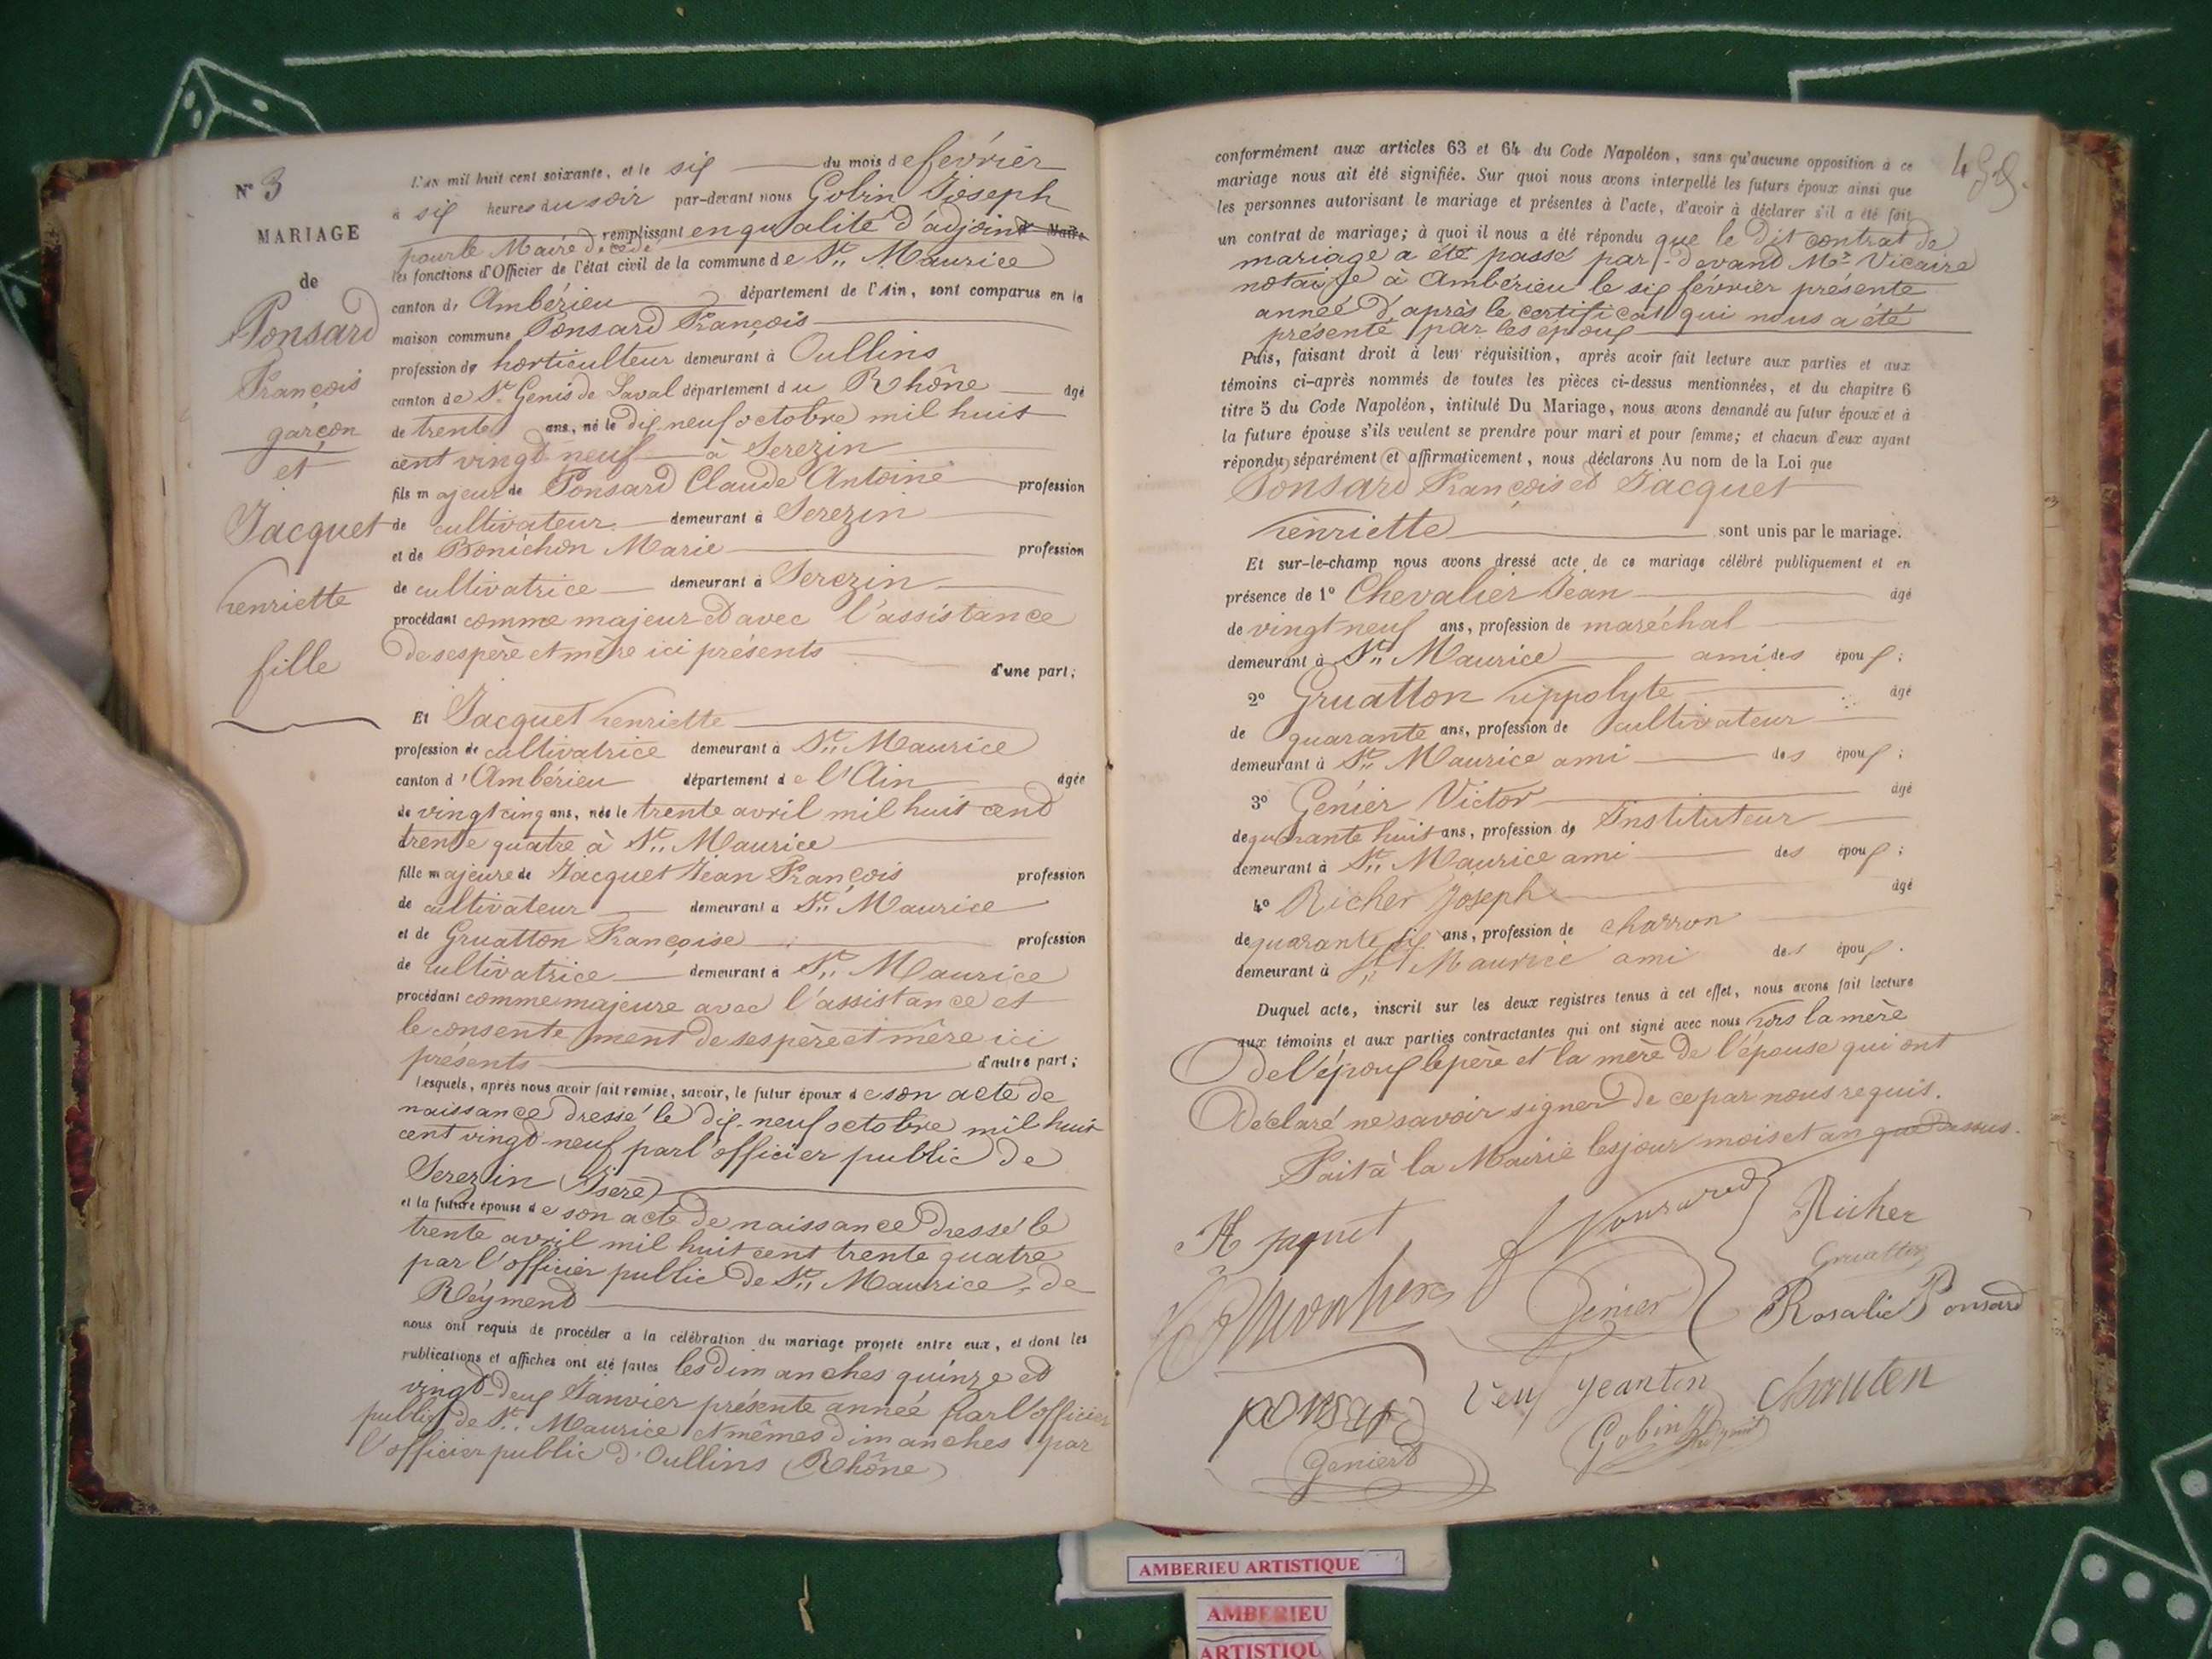 N° 3
MARIAGE
de
Ponsard
François
garçon
et
Jacquet
henriette
fille
L'an mil huit cent soixante, et le six du mois de février
à six heures du soir par-devant nous Gobin Joseph
remplissant en qualité d'adjoint Maire
pour le Maire décédé
les fonctions d'Officier de l'état civil de la commune de St. Maurice
canton d' Ambérieu département de l'Ain, sont comparus en la
maison commune Ponsard François
profession de horticulteur demeurant à Oullins
canton de St Genis de Laval département du Rhône âgé
de trente ans, né le dix neuf octobre mil huit
cent vingt neuf à Serezin
fils majeur de Ponsard Claude Antoine profession
de cultivateur demeurant à Serezin
et de Bonichon Marie profession
de cultivatrice demeurant à Serezin
procédant comme majeur et avec l'assistance
de ses père et mère ici présents
d'une part;
Et Jacquet henriette
profession de cultivatrice demeurant à St. Maurice
canton d'Ambérieu département de l'Ain âgée
de vingt cinq ans, née le trente avril mil huit cent
trente quatre à St. Maurice
fille majeure de Jacquet Jean François profession
de cultivateur demeurant à St. Maurice
et de Gruatton Françoise profession
de cultivatrice demeurant à St. Maurice
procédant comme majeure avec l'assistance et
le consentement de ses père et mère ici
présents d'autre part;
Lesquels, après nous avoir fait remise, savoir, le futur époux de son acte de
naissance dressé le dix-neuf octobre mil huit
cent vingt-neuf par l'officier public de
Serezin (Isère)
et la future épouse de son acte de naissance dressé le
trente avril mil huit cent trente quatre
par l'officier public de St. Maurice, de
Réyment
nous ont requis de procéder à la célébration du mariage projeté entre eux, et dont les
publications et affiches ont été faites les dimanches quinze et
vingt-deux Janvier présente année par l'officier
public de St. Maurice et mêmes dimanches par
l'officier public d'Oullins (Rhône)
conformément aux articles 63 et 64 du Code Napoléon, sans qu'aucune opposition à ce
mariage nous ait été signifiée. Sur quoi nous avons interpellé les futurs époux ainsi que
les personnes autorisant le mariage et présentes à l'acte, d'avoir à déclarer s'il a été fait
un contrat de mariage; à quoi il nous a été répondu que le dit contrat de
mariage a été passé par-devand Me. Vicaire
notaire à Ambérieu le six février présente
année d'après le certificat qui nous a été
présenté par les époux
Puis, faisant droit à leur réquisition, après avoir fait lecture aux parties et aux
témoins ci-après nommés de toutes les pièces ci-dessus mentionnées, et du chapitre 6
titre 5 du Code Napoléon, intitulé Du Mariage, nous avons demandé au futur époux et à
la future épouse s'ils veulent se prendre pour mari et pour femme; et chacun d'eux ayant
répondu séparément et affirmativement, nous déclarons Au nom de la Loi que
Ponsard François et Jacquet
henriette sont unis par le mariage.
Et sur-le-champ nous avons dressé acte de ce mariage célébré publiquement et en
présence de 1° Chevalier Jean âgé
de vingt neuf ans, profession de maréchal
demeurant à St. Maurice ami des époux;
2° Gruatton hippolyte âgé
de quarante ans, profession de cultivateur
demeurant à St. Maurice ami des époux;
3° Genier Victor âgé
de quarante huit ans, profession de Instituteur
demeurant à St. Maurice ami des époux;
4° Richer Joseph âgé
de quarante six ans, profession de charron
demeurant à St. Maurice ami des époux.
Duquel acte, inscrit sur les deux registres tenus à cet effet, nous avons fait lecture
aux témoins et aux parties contractantes qui ont signé avec nous hors la mère
de l'époux le père et la mère de l'épouse qui ont
Déclaré ne savoir signer de ce par nous requis.
Fait à la Mairie les jour mois et an que dessus.
H jaquet
f Ponsard
Richer
Gruatton
Genier
Rosalie Ponsard
ponsard
jeanton
Genier
Gobin
AMBERIEU ARTISTIQUE
AMBERIEU
ARTISTIQU